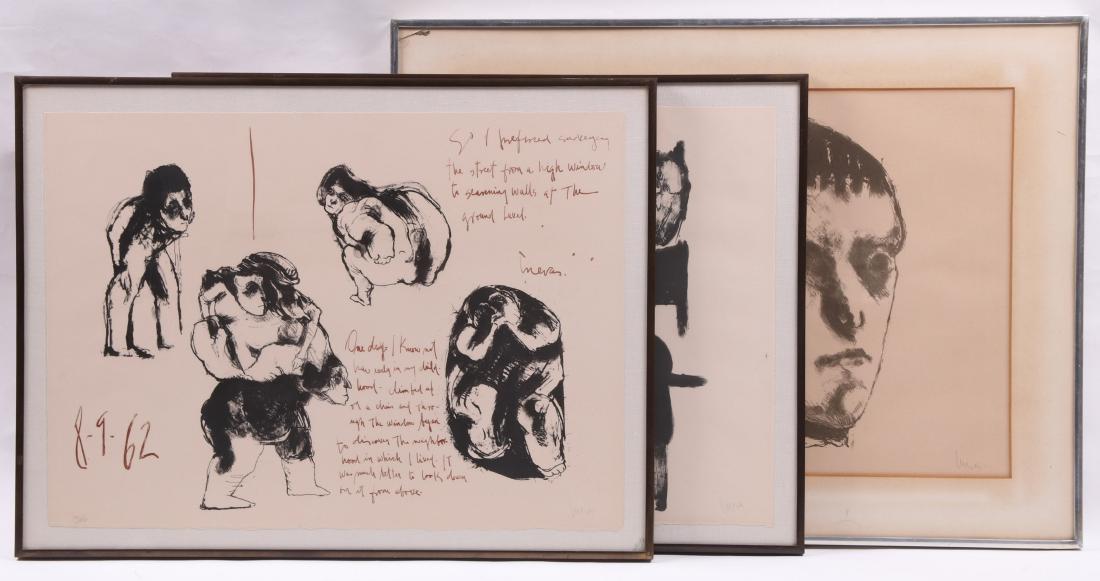 So I preferred surveying
the street from a high window
to scanning walls at The
ground level.
Cuevas.
One day, I Know not
how early in my child-
hood - climbed up
on a chair and thro-
ugh The window began
to discover The neighbor
hood in which I lived. IT
was much better to look down
on it from above.
8-9-62